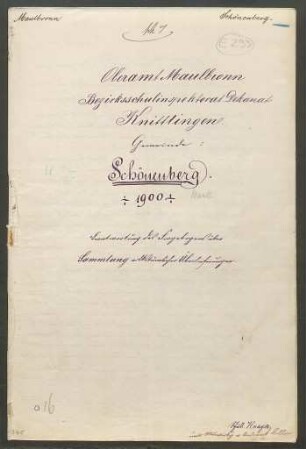 Maulbronn
Schönenberg.
E 255
Oberamt Maulbronn
Bezirksschulinspektorat Dekanat
Knittlingen
Gemeinde:
Schönenberg.
÷ 1900 ÷
Beantwortung des Fragebogens über
Sammlung volkstümlicher Überlieferungen
016